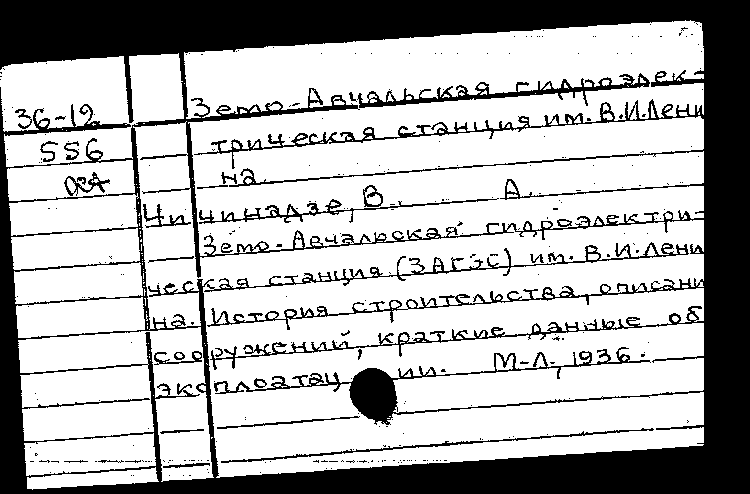 36-12 Земо-Авчальская гидроэлек-
556 трическая станция им. В.И.Лени
на.
Чичинадзе, В. А.
Земо-Авчальская гидроэлектри-
ческая станция (ЗАГЭС) им. В.И.Лени
на. История строительства, описани
сооружений, краткие данные об
эксплоатации. М-Л., 1936.